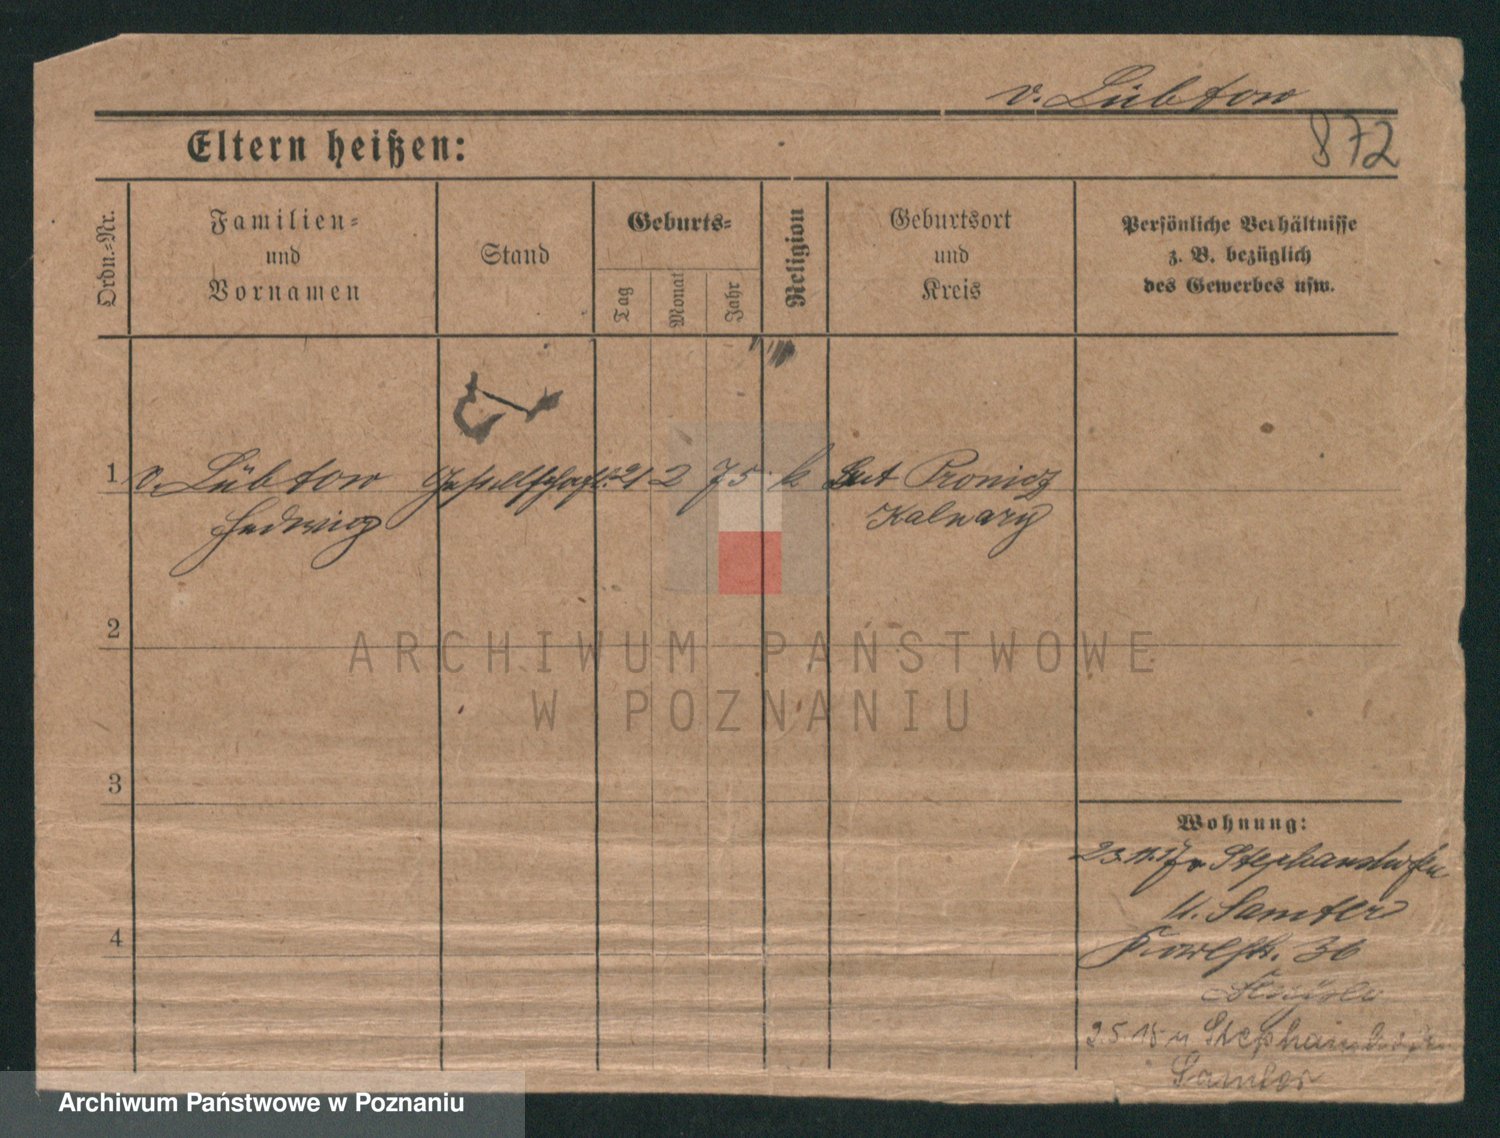 v. Lübtow
872
Eltern heißen:
Ordn.-Nr.
Familien-
und
Vornamen
Stand
Geburts-
Tag
Monat
Jahr
Religion
Geburtsort
und
Kreis
Persönliche Verhältnisse
z. B. bezüglich
des Gewerbes usw.
1 v. Lübtow Gesellschaft. 21 2 75 k Gut
Hedwig Kalvary
2
ARCHIWUM PAŃSTWOWE
W POZNANIU
3
Wohnung:
23.11.17 v Stephanshofen
K. Samter
36
4
2.5.18 n Stephanshofen
Samter
Archiwum Państwowe w Poznaniu